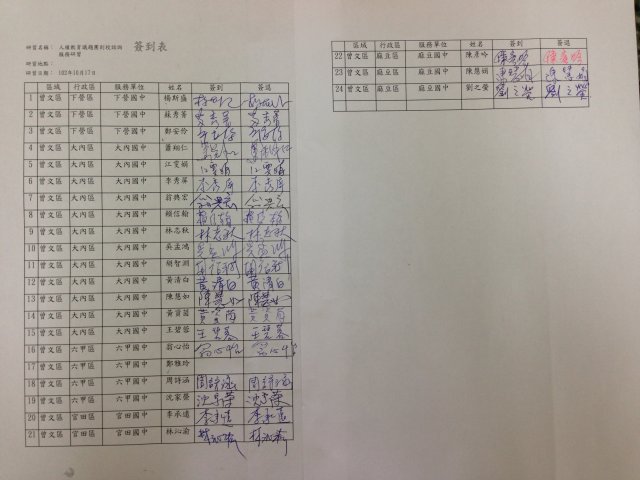 研習名稱: 人權教育議題團到校諮詢 簽到表
服務研習
研習地點:
研習日期: 102年10月17日
區域 行政區 服務單位 姓名 簽到 簽退
1 曾文區 下營區 下營國中 楊斯盛
2 曾文區 下營區 下營國中 蘇秀菁
3 曾文區 下營區 下營國中 鄭安伶
4 曾文區 大內區 大內國中 蕭翔仁
5 曾文區 大內區 大內國中 江雯娟 江雯娟 江雯娟
6 曾文區 大內區 大內國中 李秀屏 李秀屏 李秀屏
7 曾文區 大內區 大內國中 翁典宏 翁典宏 翁典宏
8 曾文區 大內區 大內國中 賴信翰
9 曾文區 大內區 大內國中 林志秋 林志秋 林志秋
10 曾文區 大內區 大內國中 吳孟鴻
11 曾文區 大內區 大內國中 胡智淵
12 曾文區 大內區 大內國中 黃清白 黃清白 黃清白
13 曾文區 大內區 大內國中 陳慧如 陳慧如 陳慧如
14 曾文區 大內區 大內國中 黃寶茵
15 曾文區 大內區 大內國中 王碧蓉 王碧蓉 王碧蓉
16 曾文區 六甲區 六甲國中 翁心怡 翁心怡 翁心怡
17 曾文區 六甲區 六甲國中 鄭雅玲
18 曾文區 六甲區 六甲國中 周詩涵 周詩涵 周詩涵
19 曾文區 六甲區 六甲國中 沈家榮
20 曾文區 官田區 官田國中 李承遠
21 曾文區 官田區 官田國中 林沁渝
區域 行政區 服務單位 姓名 簽到 簽退
22 曾文區 麻豆區 麻豆國中 陳彥吟 陳彥吟 陳彥吟
23 曾文區 麻豆區 麻豆國中 陳慧娟
24 曾文區 麻豆區 麻豆國中 劉之螢 劉之螢 劉之螢